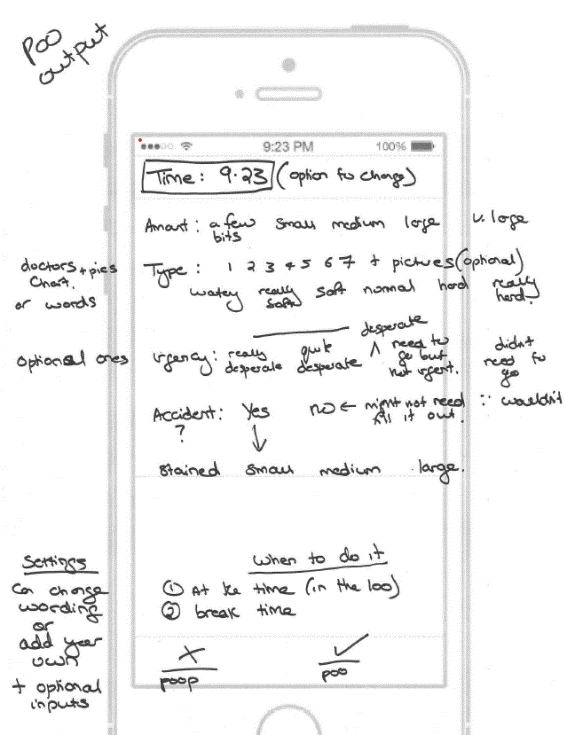 Poo
output
9:23 PM
100%
Time: 9.23 (option to change)
Amount: a few bits small medium large v. large
doctors chart. + pics or words
Type: 1 2 3 4 5 6 7 + pictures (optional)
watery really soft soft normal hard really hard.
optional ones
Urgency: really desperate quite desperate desperate ^ need to go but not urgent. didn't need to go
Accident: Yes no ← might not need fill it out. ∵ wouldn't
?
stained small medium large.
Settings
Can change
wording
or
add your
own
+ optional
inputs
When to do it
① At the time (in the loo)
② break time
✗ ✓
poop poo